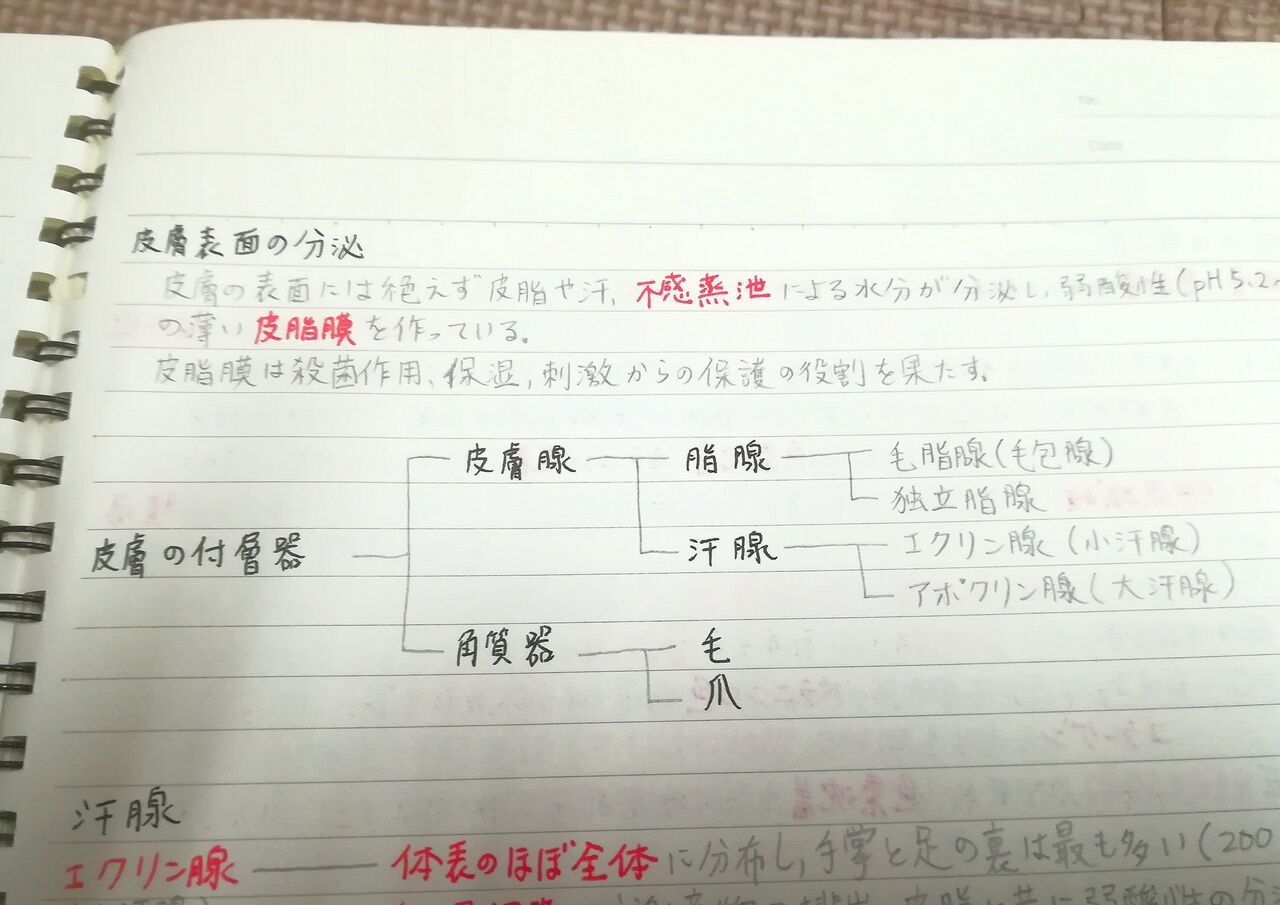 No.
Date
皮膚表面の分泌
皮膚の表面には絶えず皮脂や汗、不感蒸泄による水分が分泌し、弱酸性(pH5.2~
の薄い皮脂膜を作っている。
皮脂膜は殺菌作用、保湿,刺激からの保護の役割を果たす。
皮膚腺 脂腺 毛脂腺(毛包腺)
独立脂腺
皮膚の付層器 汗腺 エクリン腺(小汗腺)
アポクリン腺(大汗腺)
角質器 毛
爪
汗腺
エクリン腺 体表のほぼ全体に分布し,手掌と足の裏は最も多い(200
皮脂と共に弱酸性の分泌